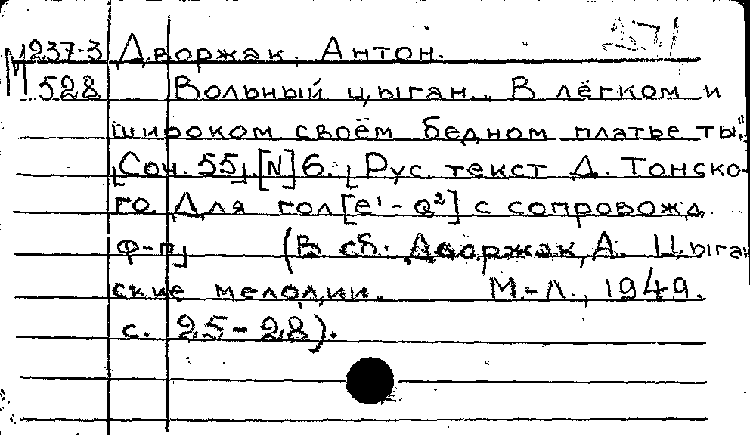 М237-3 Дворжак, Антон.
528 Вольный цыган. „В лёгком и
широком своём бедном платье ты".
[Соч. 55]. [N] 6. [Рус. текст Д. Тонско-
го. Для гол[e¹ - a²] с сопровожд.
ф-п] (В сб. Дворжак, А. Цыган
ские мелодии. М.-Л., 1949.
с. 25-28).